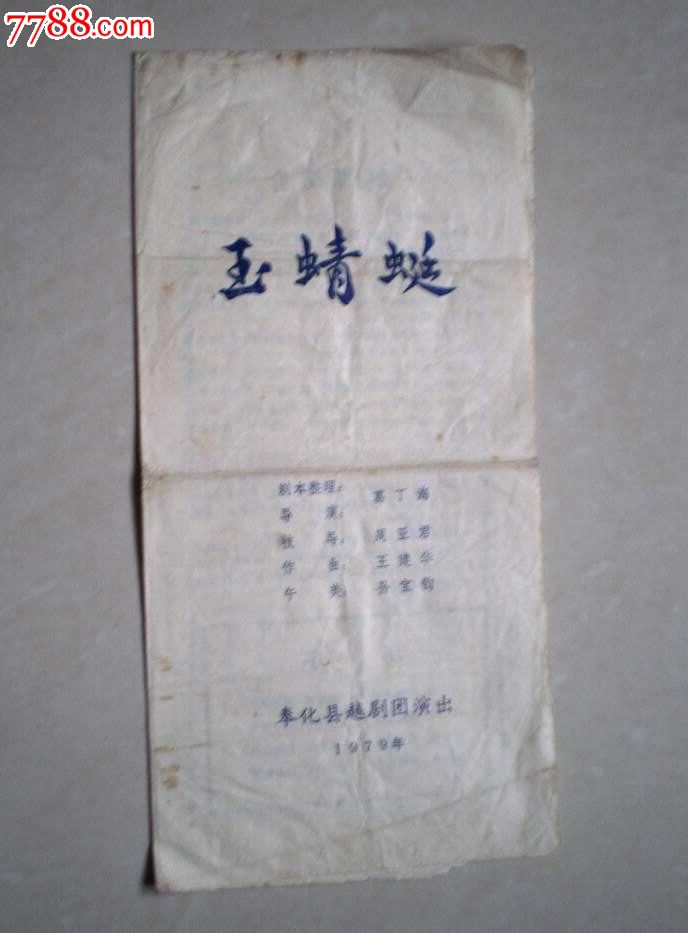 7788.com
玉蜻蜓
剧本整理：
葛丁海
导　演：
敎　导：周亚君
作　曲：王建华
午　美：岳宝钧
奉化县越剧团演出
1979年